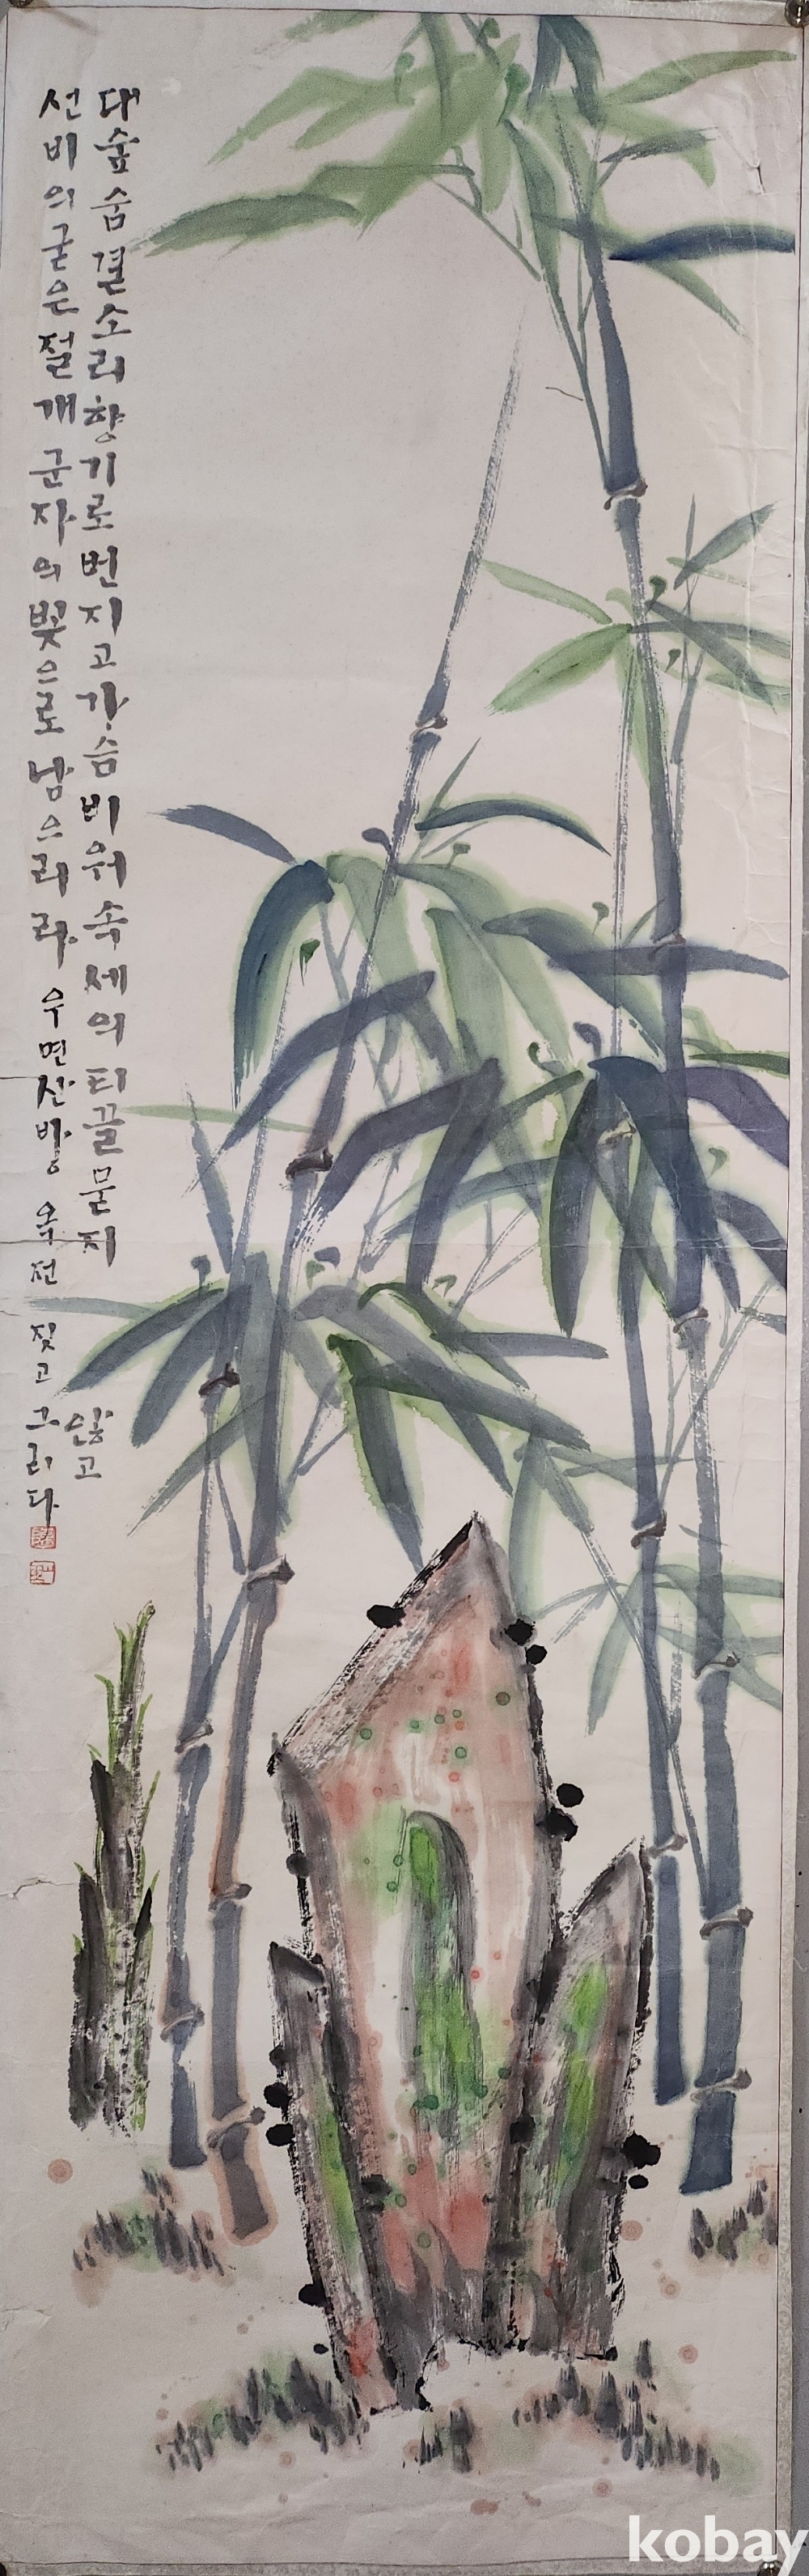 대숲 숨결 소리 향기로 번지고 가슴 비워 속세의 티끌 묻지
않고
선비의 굳은 절개 군자의 빛으로 남으리라 우면산방 옥전 짓고 그리다
kobay